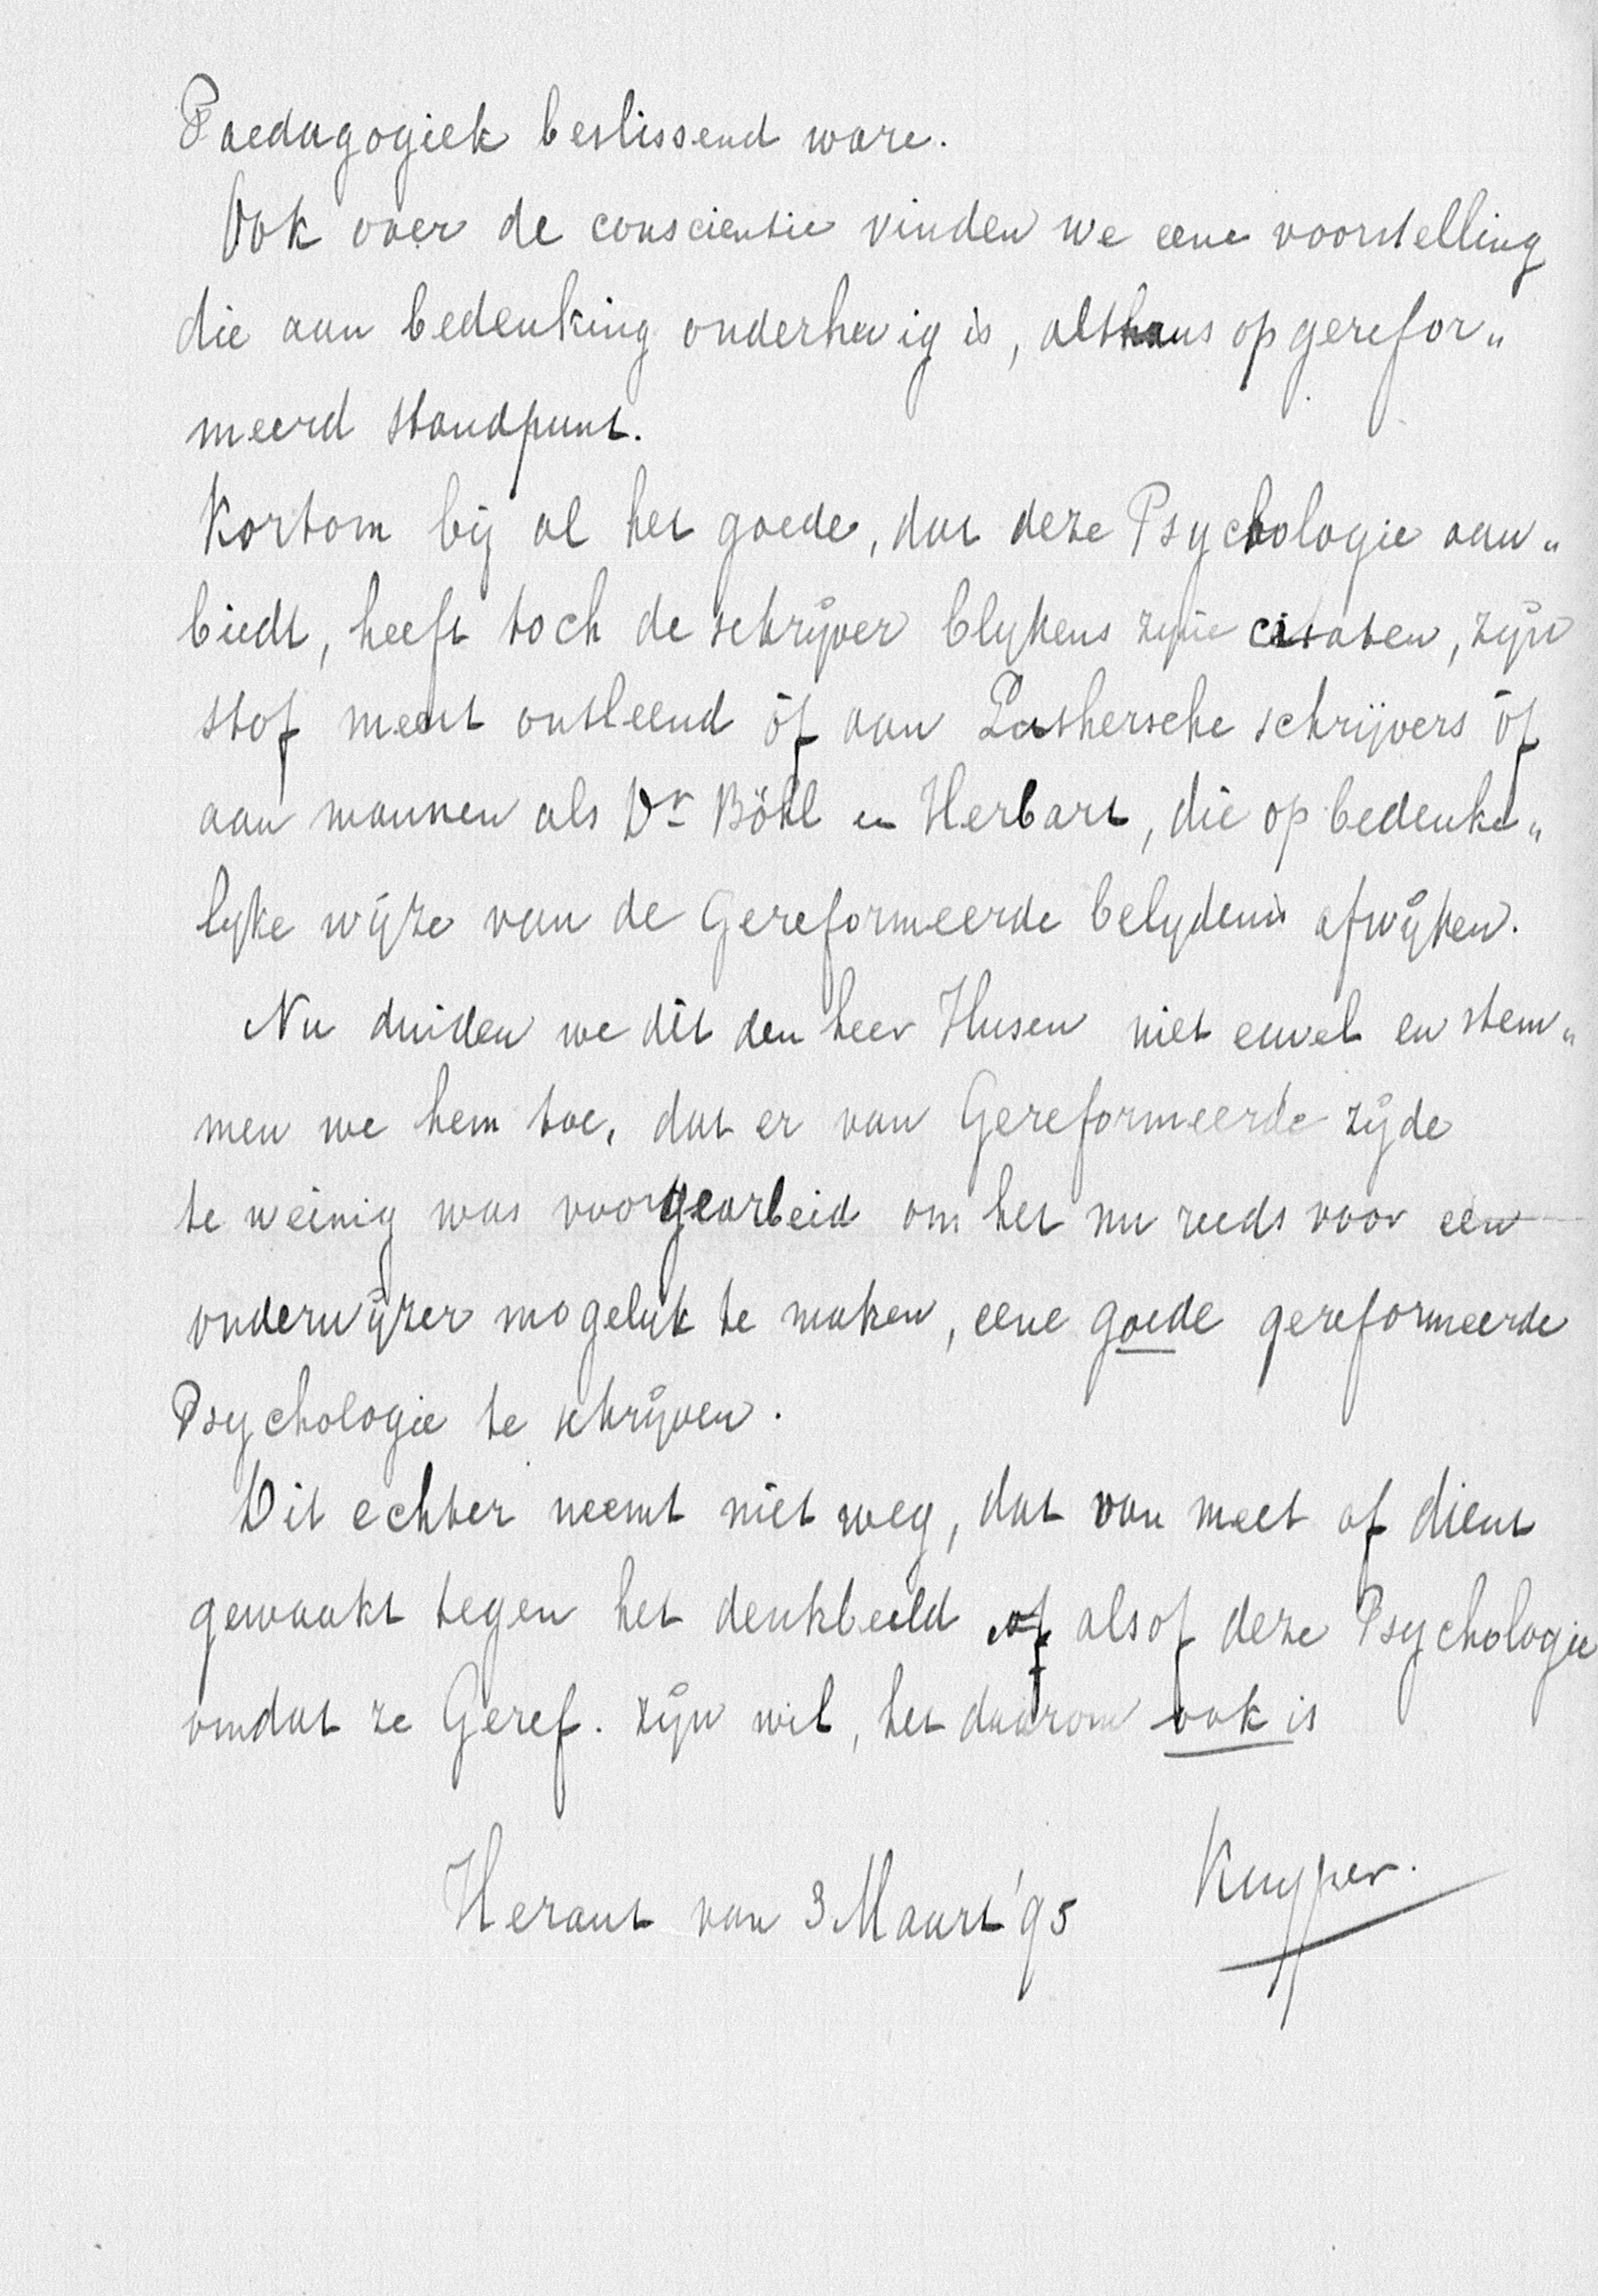 Paedagogiek beslissend ware.
Ook over de conscientie vinden we eene voorstelling
die aan bedenking onderhevig is, althans op gerefor„
meerd standpunt.
Kortom bij al het goede, dat deze Psychologie aan„
biedt, heeft toch de schrijver blijkens zijne citaten, zijn
stof meest ontleend òf aan Luthersche schrijvers òf
aan mannen als Dr Böhl en Herbart, die op bedenke„
lijke wijze van de Gereformeerde belijdenis afwijken.
Nu duiden we dit den heer Husen niet euvel en stem„
men we hem toe, dat er van Gereformeerde zijde
te weinig was voorgearbeid om het nu reeds voor een
onderwijzer mogelijk te maken, eene goede gereformeerde
Psychologie te schrijven.
Dit echter neemt niet weg, dat van meet af dient
gewaakt tegen het denkbeeld of alsof deze Psychologie
omdat ze Geref. zijn wil, het daarom ook is
Heraut van 3 Maart '95 Kuyper.